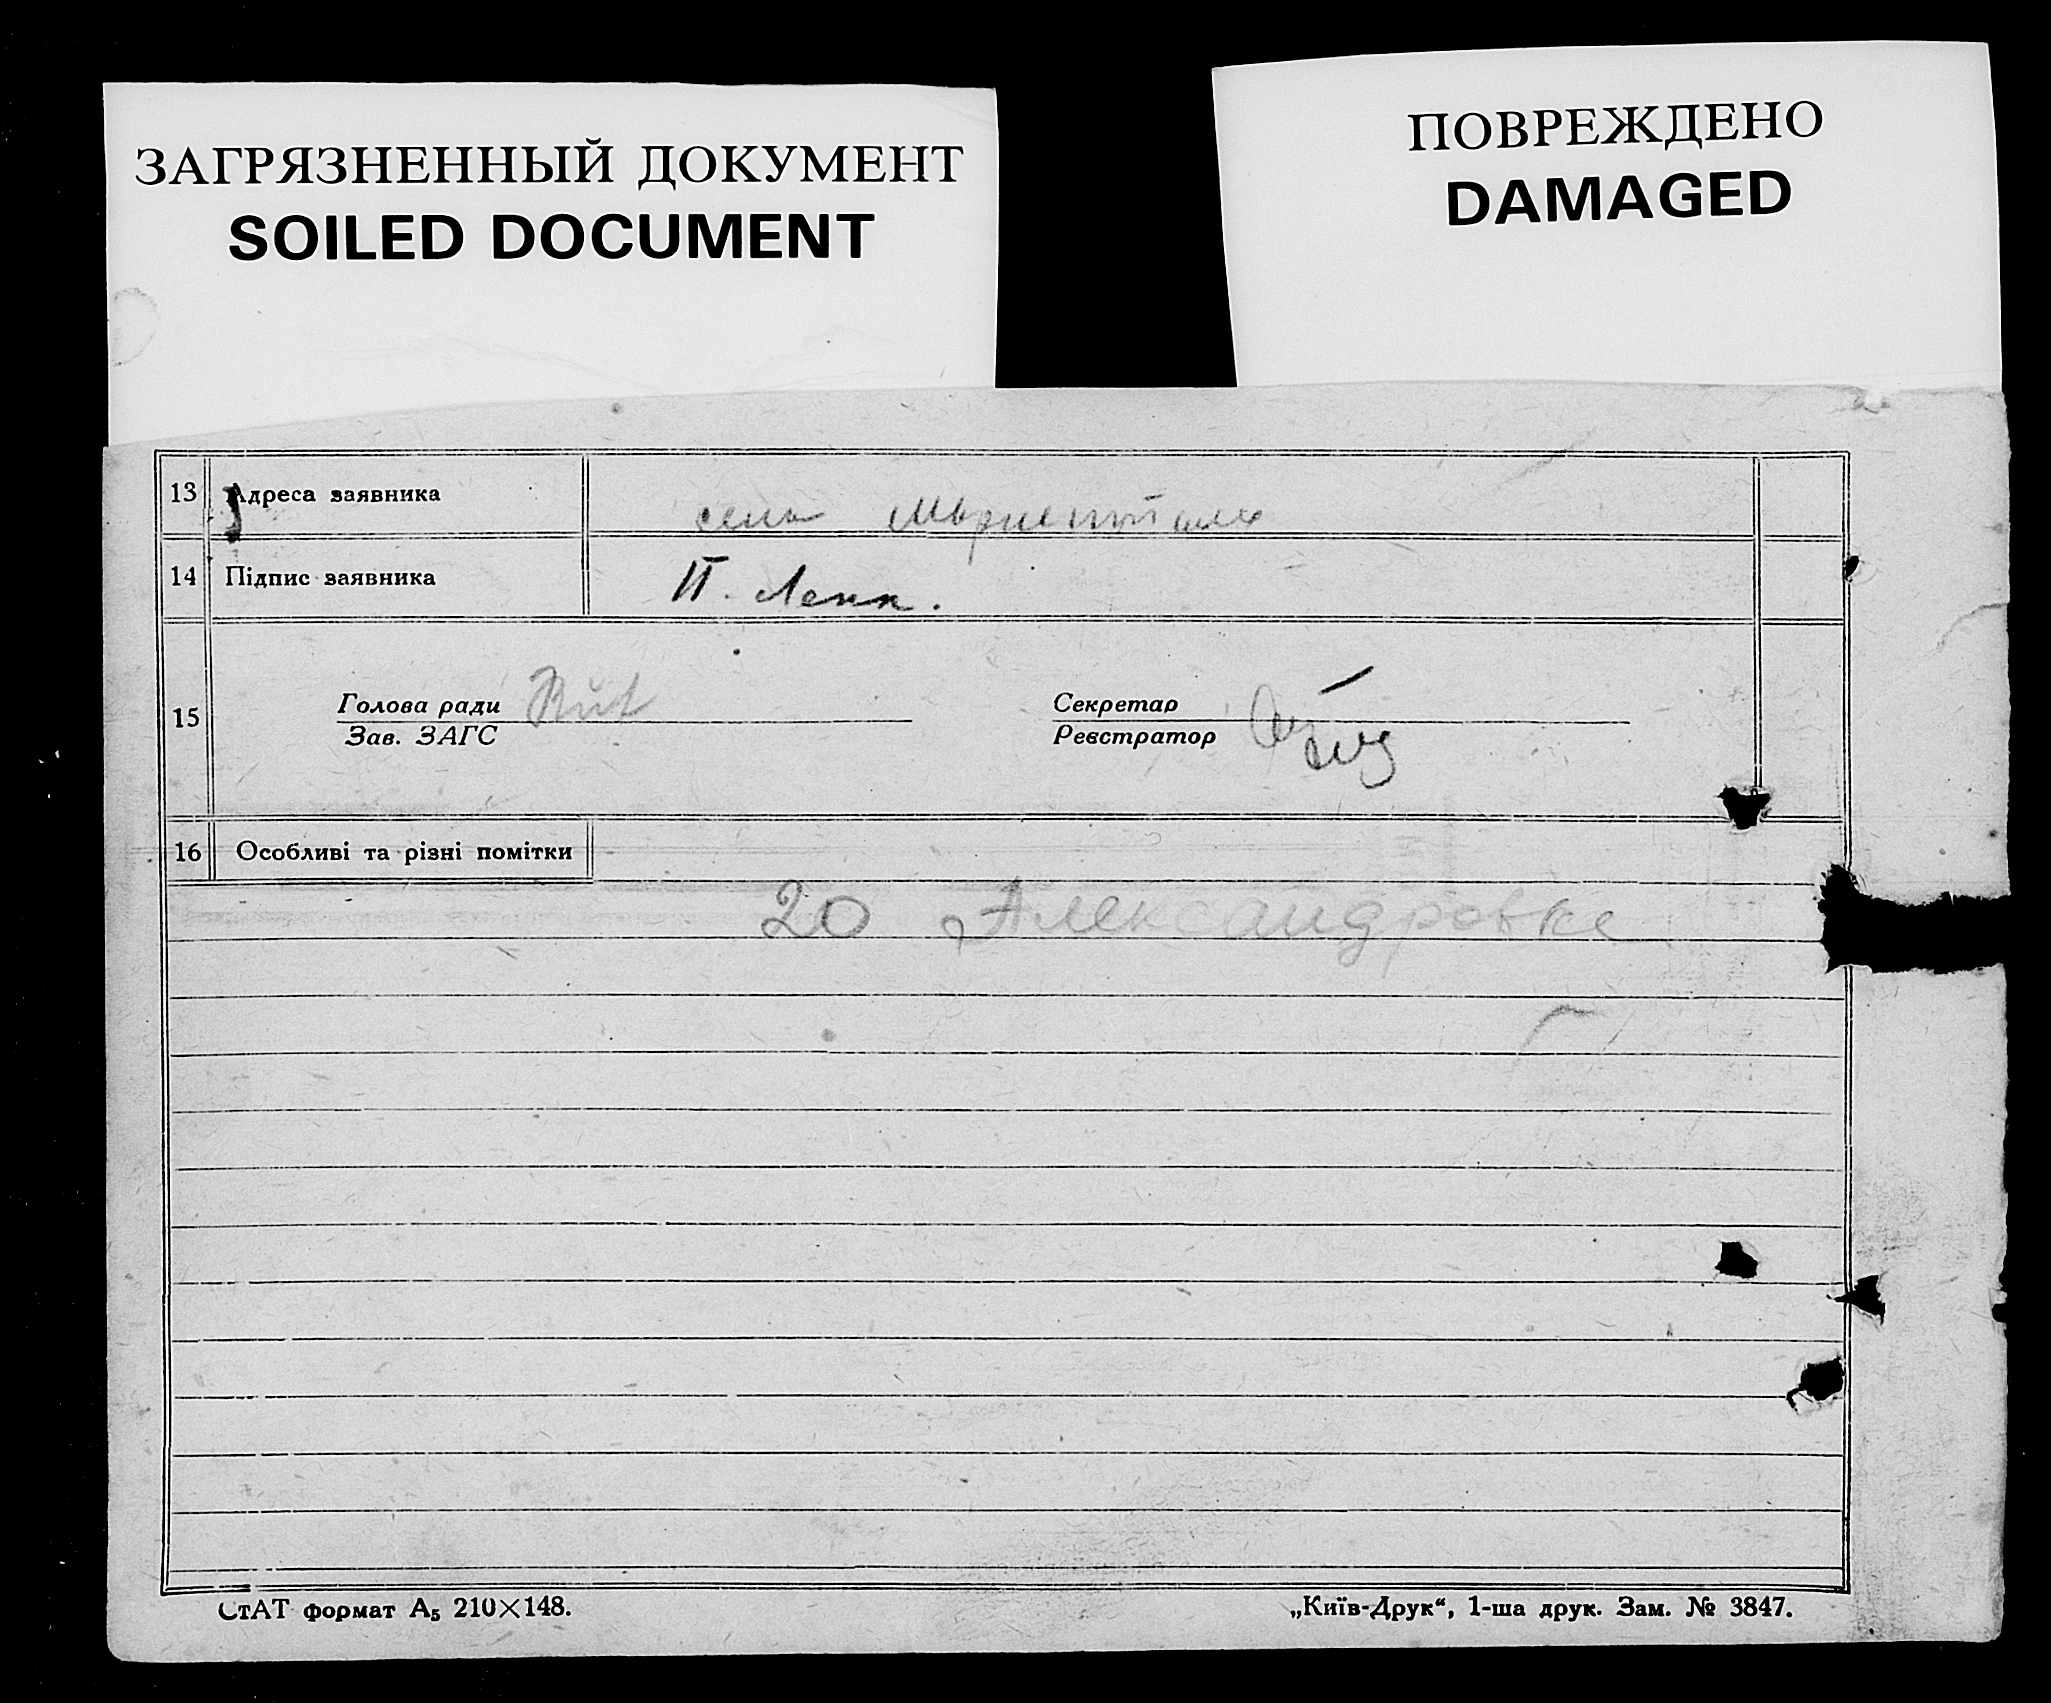 ЗАГРЯЗНЕННЫЙ ДОКУМЕНТ
SOILED DOCUMENT
ПОВРЕЖДЕНО
DAMAGED
13 Адреса заявника село
14 Підпис заявника П. Ленн.
15 Голова ради Секретар
Зав. ЗАГС Реєстратор
16 Особливі та різні помітки
20 Александровке
СтАТ формат А5 210×148.
„Київ-Друк“, 1-ша друк. Зам. № 3847.